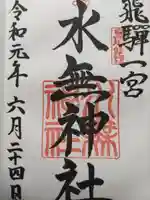 飛騨一宮
水無神社
令和元年六月二十四日